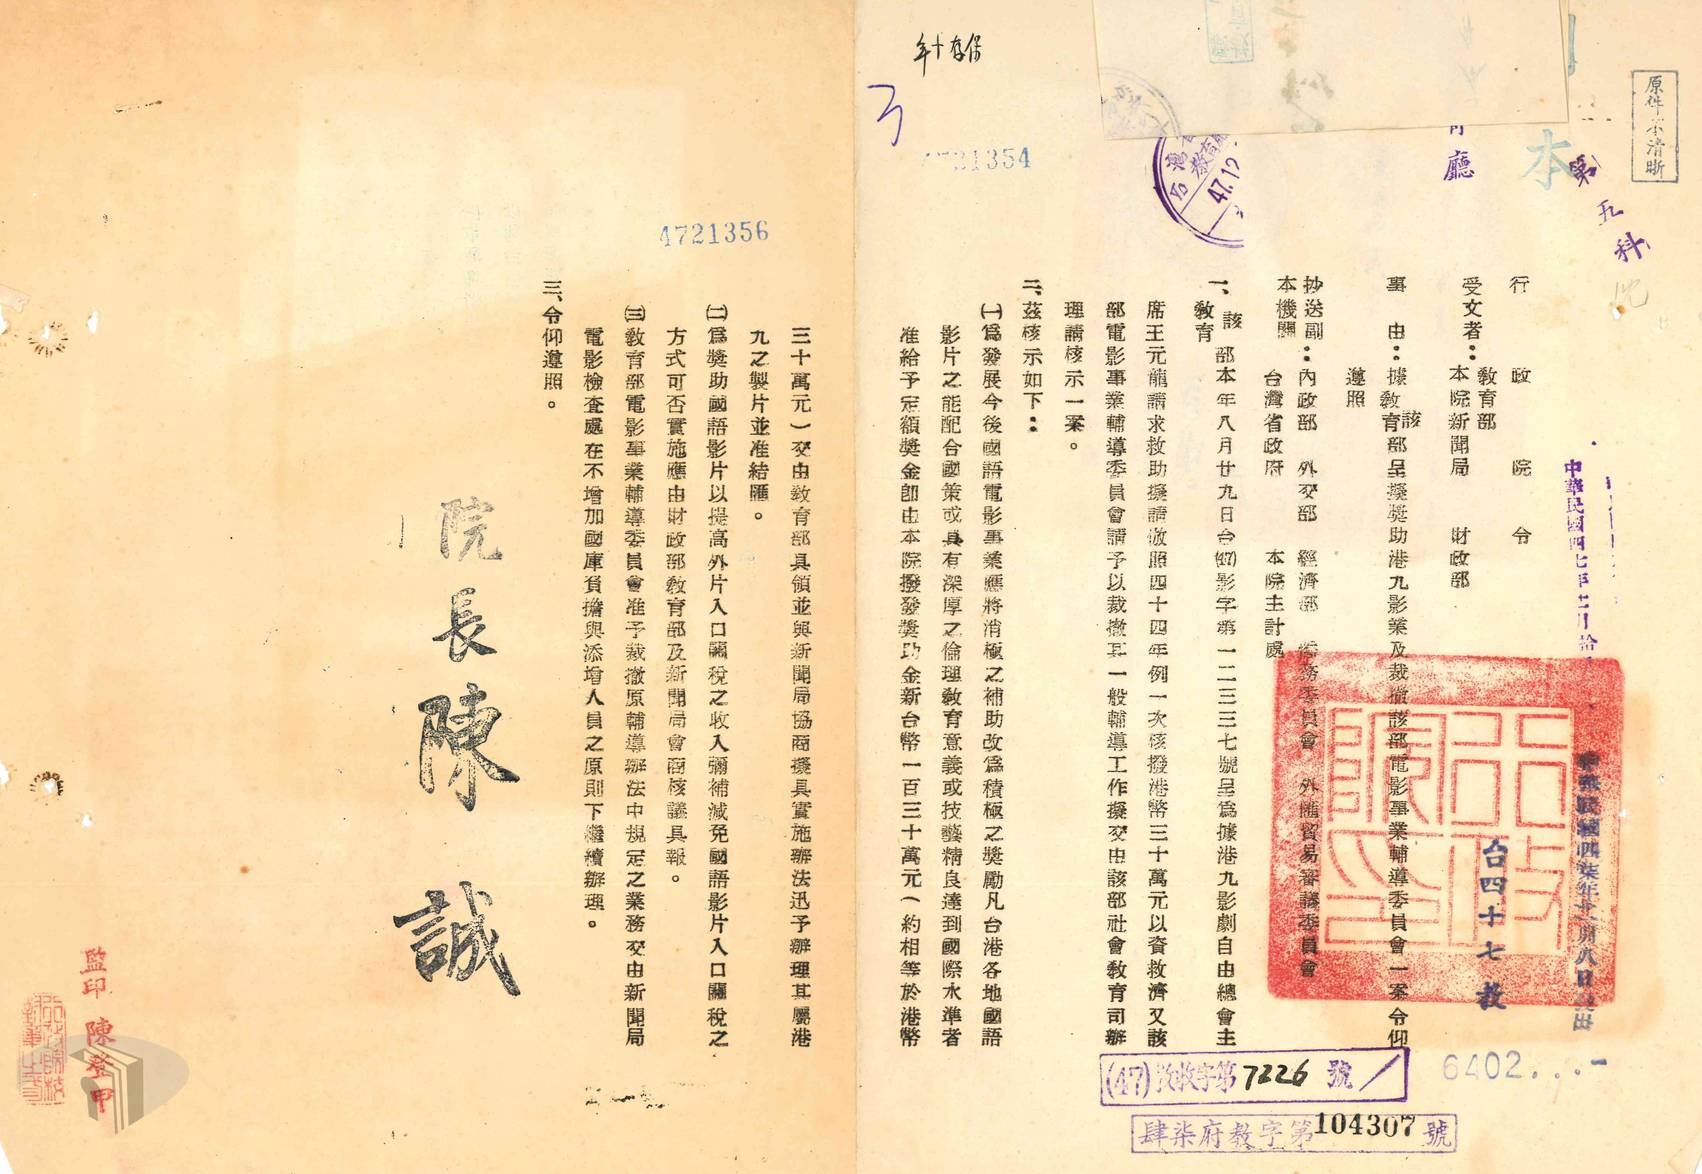 原件不清晰
第五科
廳
本
保存十年
4721354
47.12
中華民國四七年十二月拾
行政院令
受文者：教育部 本院新聞局 財政部
事由：據該教育部呈擬獎助港九影業及裁撤該部電影事業輔導委員會一案令仰
遵照
抄送副本機關：內政部 外交部 經濟部 僑務委員會 外匯貿易審議委員會
台灣省政府 本院主計處
台四十七教
6402
一、該教育部本年八月廿九日台(47)影字第一二三三七號呈爲據港九影劇自由總會主
席王元龍請求救助擬請倣照四十四年例一次核撥港幣三十萬元以資救濟又該
部電影事業輔導委員會請予以裁撤其一般輔導工作擬交由該部社會教育司辦
理請核示一案。
二、茲核示如下：
㈠爲發展今後國語電影事業應將消極之補助改爲積極之獎勵凡台港各地國語
影片之能配合國策或具有深厚之倫理教育意義或技藝精良達到國際水準者
准給予定額獎金卽由本院撥發獎助金新台幣一百三十萬元(約相等於港幣
(47)教收字第7226號
肆柒府教字第104307號
4721356
三十萬元)交由教育部具領並與新聞局協商擬具實施辦法迅予辦理其屬港
九之製片並准結匯。
㈡爲獎助國語影片以提高外片入口關稅之收入彌補減免國語影片入口關稅之
方式可否實施應由財政部教育部及新聞局會商核議具報。
㈢教育部電影事業輔導委員會准予裁撤原輔導辦法中規定之業務交由新聞局
電影檢查處在不增加國庫負擔與添增人員之原則下繼續辦理。
三、令仰遵照。
院長陳誠
監印陳登甲